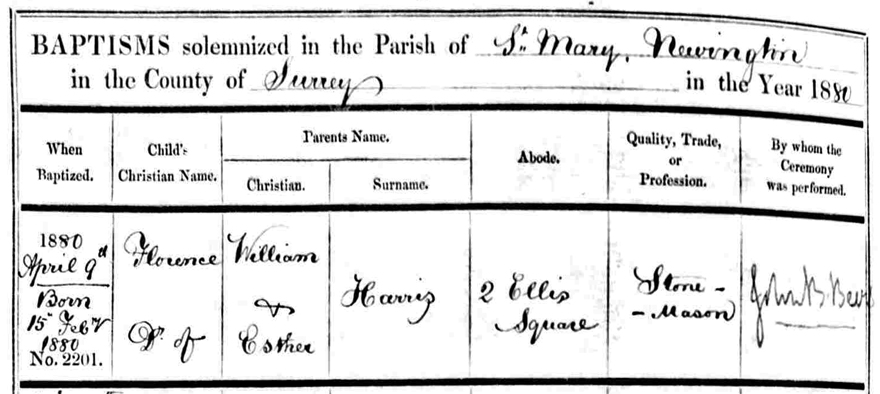 BAPTISMS solemnized in the Parish of St. Mary, Newington
in the County of Surrey in the Year 1880
When Baptized.
Child's Christian Name.
Parents Name.
Christian.
Surname.
Abode.
Quality, Trade, or Profession.
By whom the Ceremony was performed.
1880
April 9th
Born
15th Feby
1880
No. 2201.
Florence
Dr. of
William
&
Esther
Harris
2 Ellis
Square
Stone -
- Mason
John B.